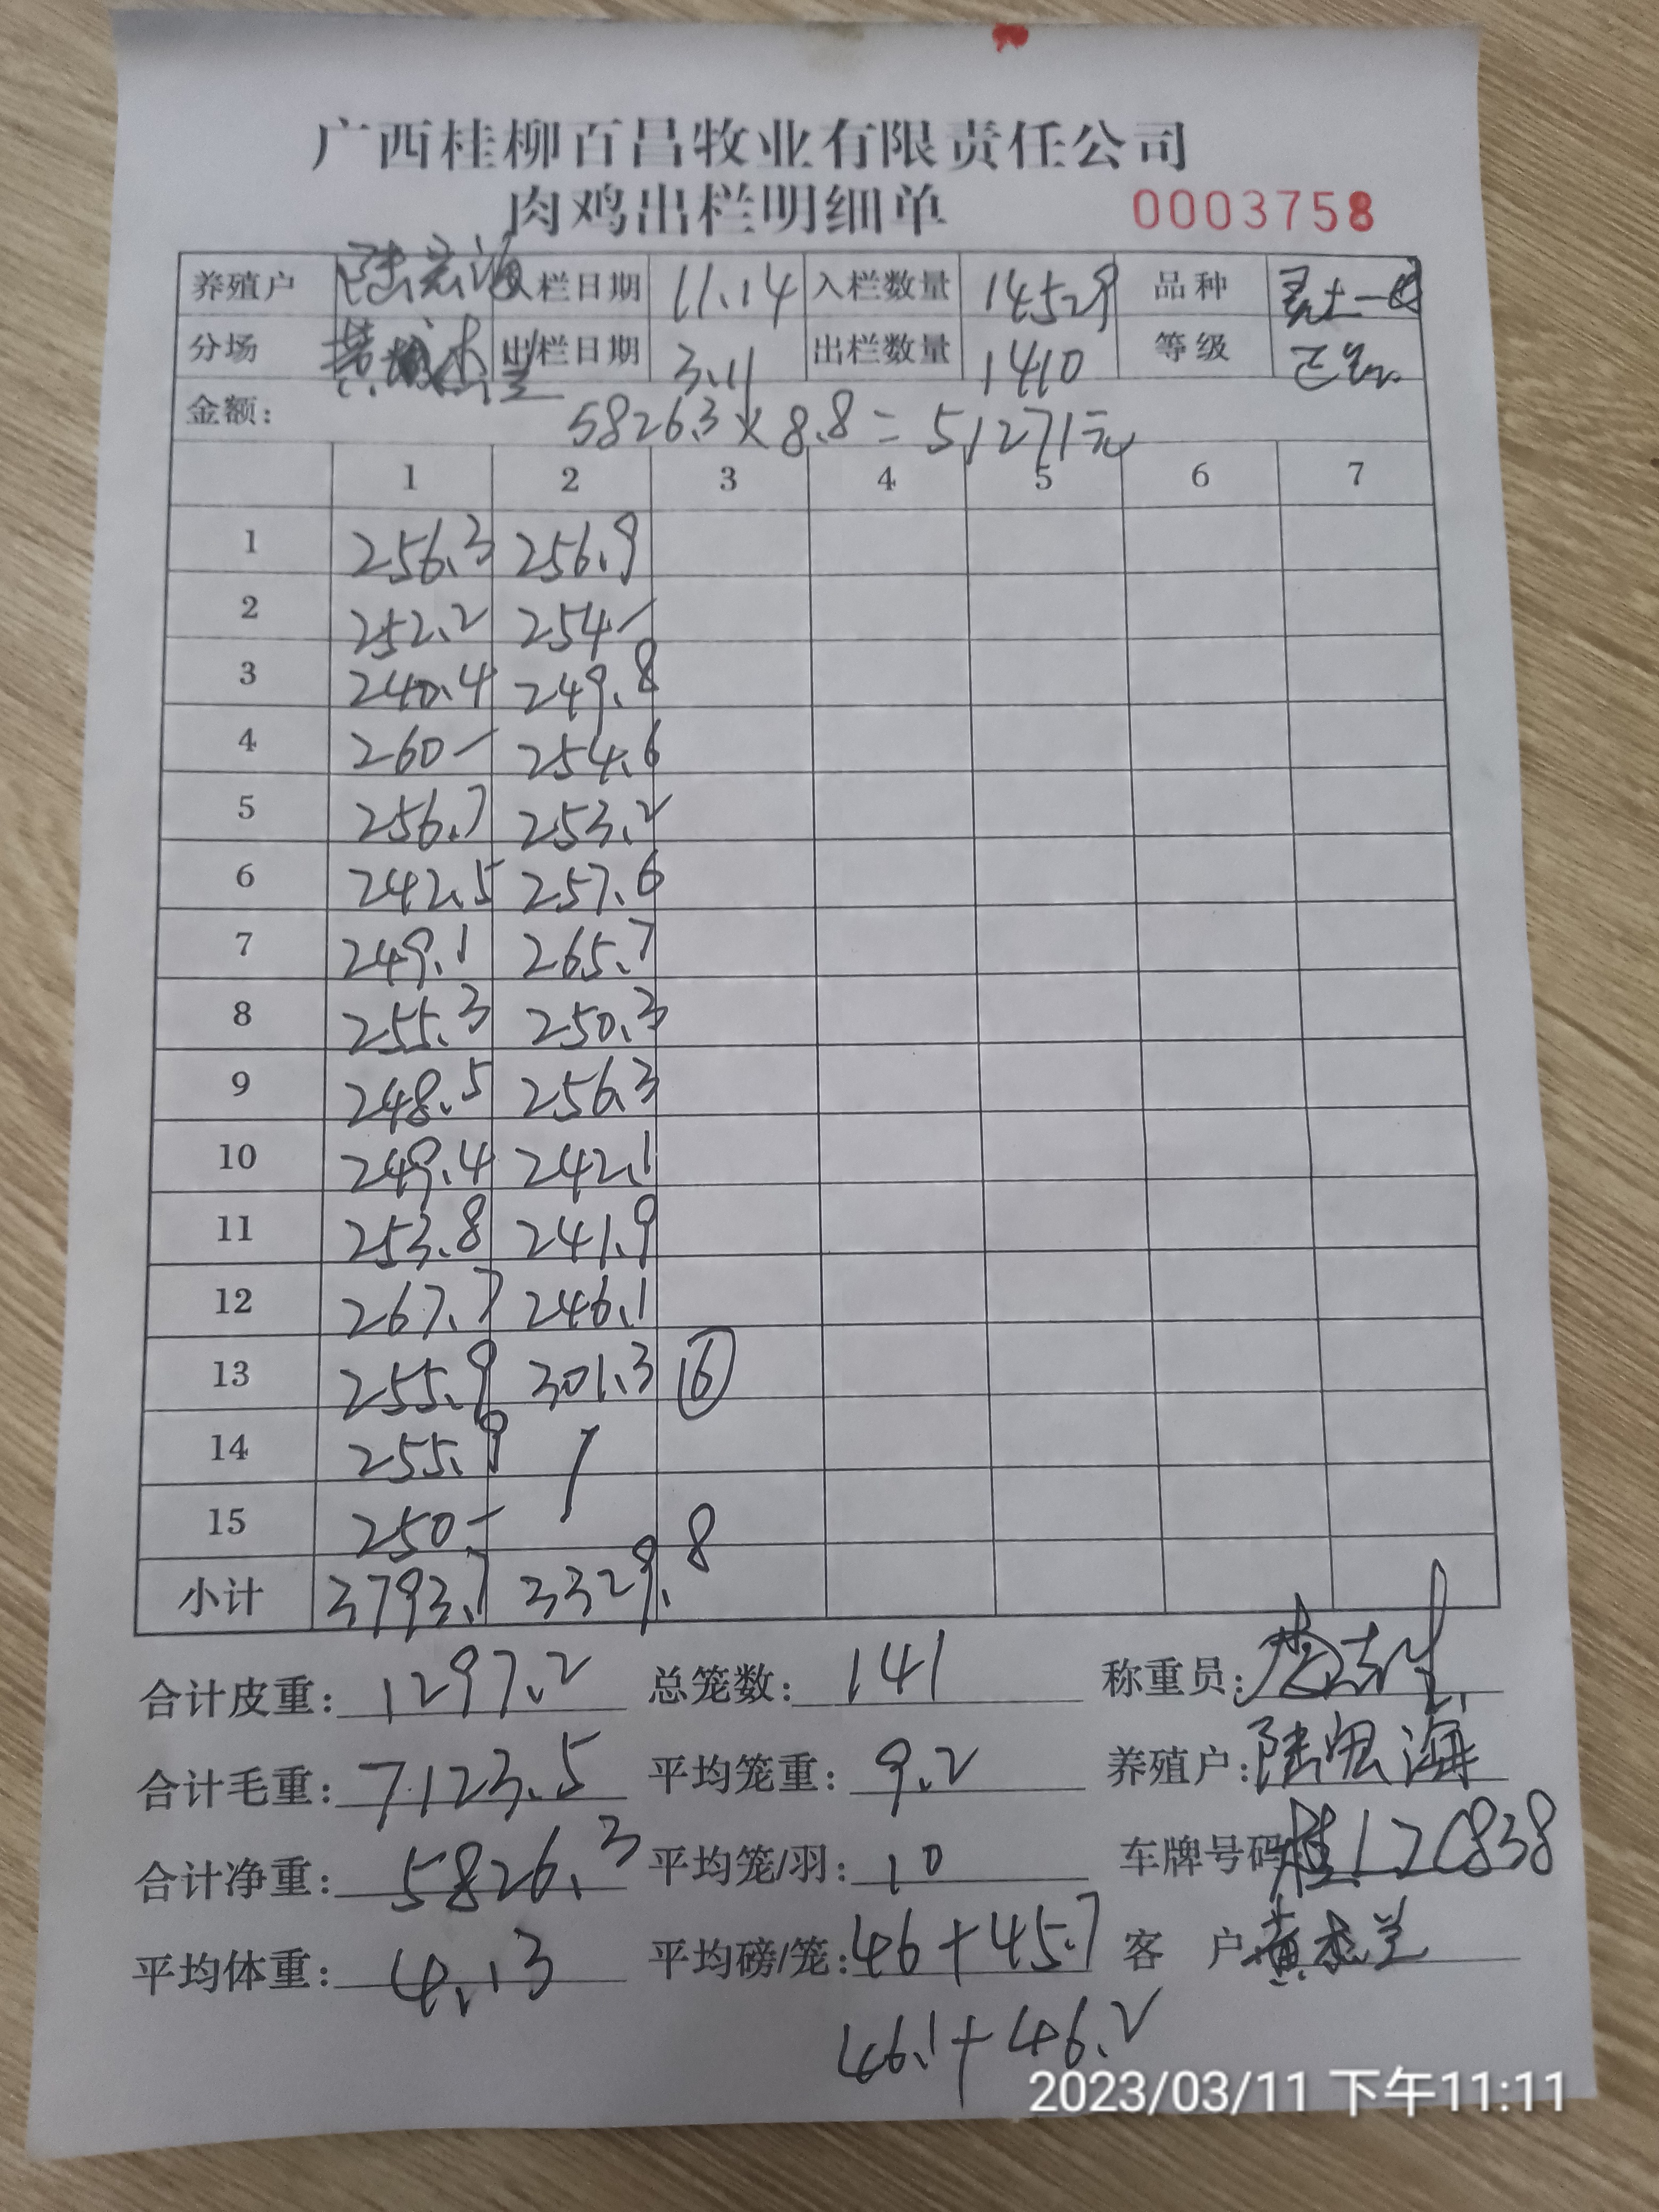 广西桂柳百昌牧业有限责任公司
肉鸡出栏明细单 0003758
养殖户 陆宏海 入栏日期 11.14 入栏数量 14529 品种
分场 出栏日期 3.11 出栏数量 1410 等级
金额: 5826.3 × 8.8 = 51271元
1 2 3 4 5 6 7
1 256.3 256.9
2 252.2 254-
3 240.4 249.8
4 260- 254.6
5 256.7 253.2
6 242.5 257.6
7 249.1 265.7
8 255.3 250.3
9 248.5 256.3
10 249.4 242.1
11 253.8 241.9
12 267.7 246.1
13 255.9 301.3 ⑥
14 255.9 /
15 250-
小计 3793.7 3329.8
合计皮重: 1297.2 总笼数: 141 称重员:
合计毛重: 7123.5 平均笼重: 9.2 养殖户: 陆宏海
合计净重: 5826.3 平均笼/羽: 10 车牌号码 桂L2C838
平均体重: 4.13 平均磅/笼: 46+45.7 客 户 黄
46.1+46.2
2023/03/11 下午11:11